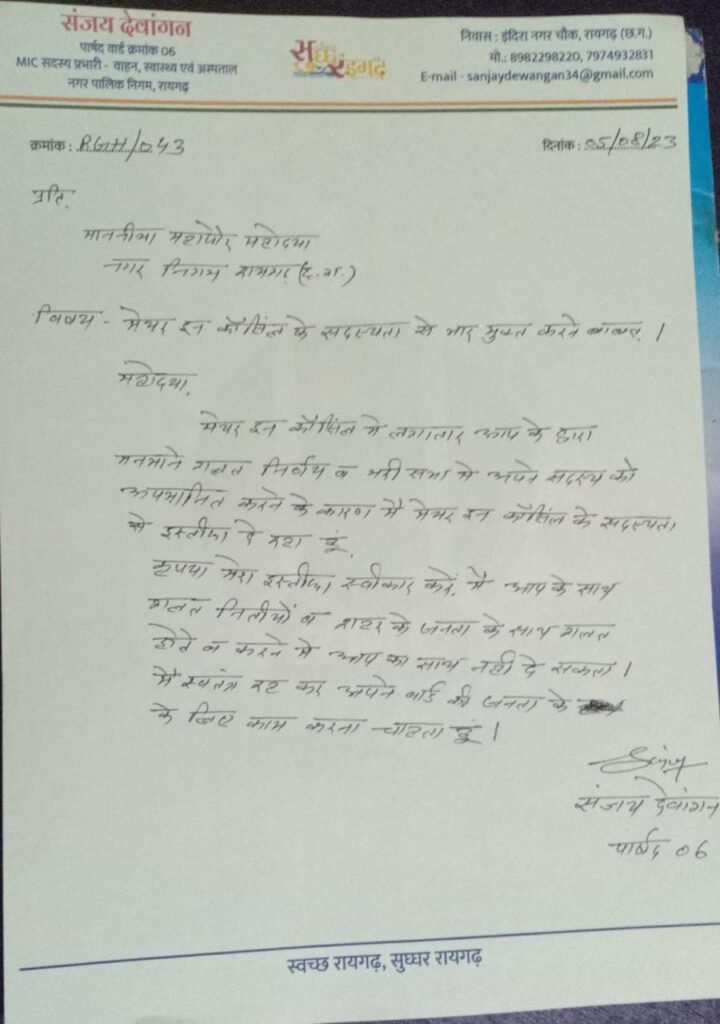 संजय देवांगन
पार्षद वार्ड क्रमांक 06
MIC सदस्य प्रभारी - वाहन, स्वास्थ्य एवं अस्पताल
नगर पालिक निगम, रायगढ़
सुघ्घर रइगढ़
निवास : इंदिरा नगर चौक, रायगढ़ (छ.ग.)
मो.: 8982298220, 7974932831
E-mail - sanjaydewangan34@gmail.com
क्रमांक : RGH/043
दिनांक : 05/08/23
प्रति,
माननीया महापौर महोदया
नगर निगम रायगढ़ (छ.ग.)
विषय - मेयर इन कौंसिल के सदस्यता से भार मुक्त करने बाबत् ।
महोदया,
मेयर इन कौंसिल मे लगातार आप के द्वारा
मनमाने गलत निर्णय व भरी सभा मे अपने सदस्य को
अपमानित करने के कारण मै मेयर इन कौंसिल के सदस्यता
से इस्तीफा दे रहा हूं.
कृपया मेरा इस्तीफा स्वीकार करें, मै आप के साथ
गलत नितीयों व शहर के जनता के साथ गलत
होते व करने मे आप का साथ नही दे सकता ।
मै स्वतंत्र रह कर अपने वार्ड की जनता के
के लिए काम करना चाहता हूं ।
संजय देवांगन
पार्षद 06
स्वच्छ रायगढ़, सुघ्घर रायगढ़